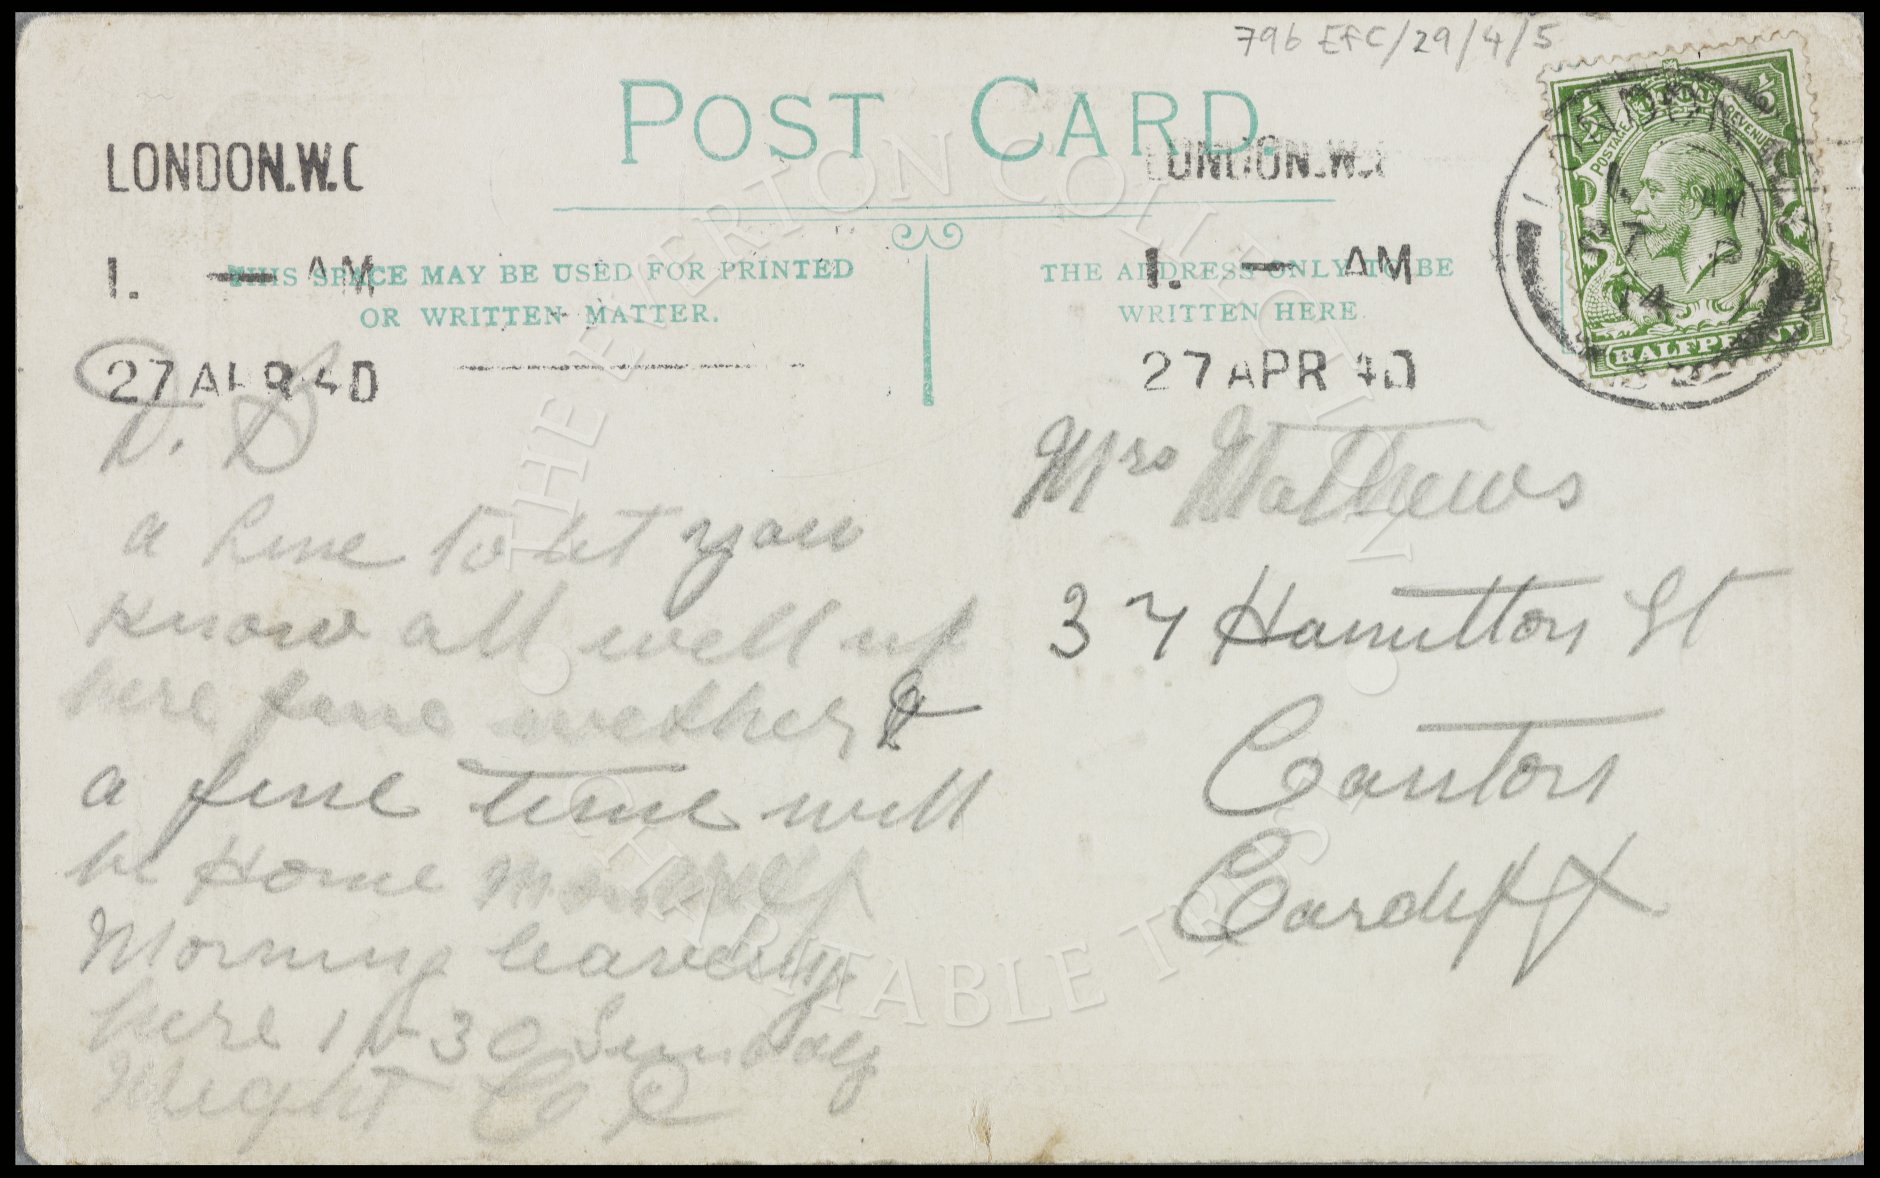 796 EFC/29/4/5
POST CARD.
LONDON.W.C
LONDON.W.C
1. — AM
1. — AM
THIS SPACE MAY BE USED FOR PRINTED
OR WRITTEN MATTER.
THE ADDRESS ONLY TO BE
WRITTEN HERE
27 APR
27 APR
½ POSTAGE REVENUE ½
HALFPENNY
LONDON
1. AM
27 AP
14
D. B
a line to let you
know all well up
here fine wether &
a fine time will
be Home
Morning leaveing
here 30 Sunday
Night
Mrs Mathews
37 Hamilton St
Canton
Cardiff
THE EVERTON COLLECTION
CHARITABLE TRUST